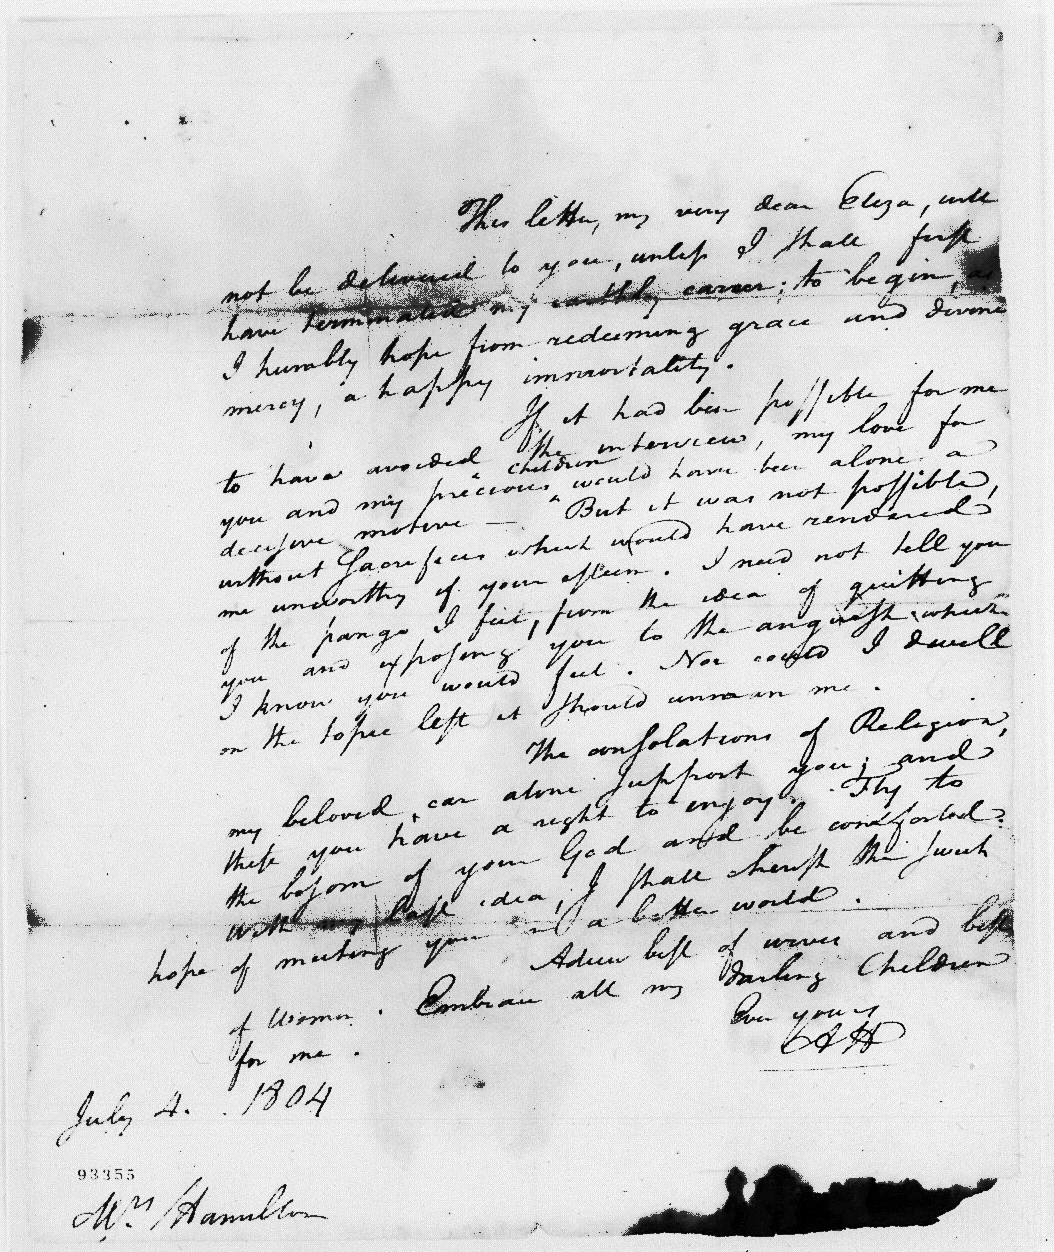 This letter, my very dear Eliza, will
not be delivered to you, unless I shall first
have terminated my earthly career; to begin, as
I humbly hope from redeeming grace and divine
mercy, a happy immortality.
If it had been possible for me
to have avoided the interview, my love for
you and my precious children would have been alone a
decisive motive — But it was not possible,
without sacrifices which would have rendered
me unworthy of your esteem. I need not tell you
of the pangs I feel, from the idea of quitting
you and exposing you to the anguish which
I know you would feel. Nor could I dwell
on the topic lest it should unman me.
The consolations of Religion,
my beloved, can alone support you; and
these you have a right to enjoy. Fly to
the bosom of your God and be comforted.
With my last idea; I shall cherish the sweet
hope of meeting you in a better world.
Adieu best of wives and best
of Women. Embrace all my darling Children
for me.
Ever yours
AH
July 4. 1804
93355
Mrs Hamilton